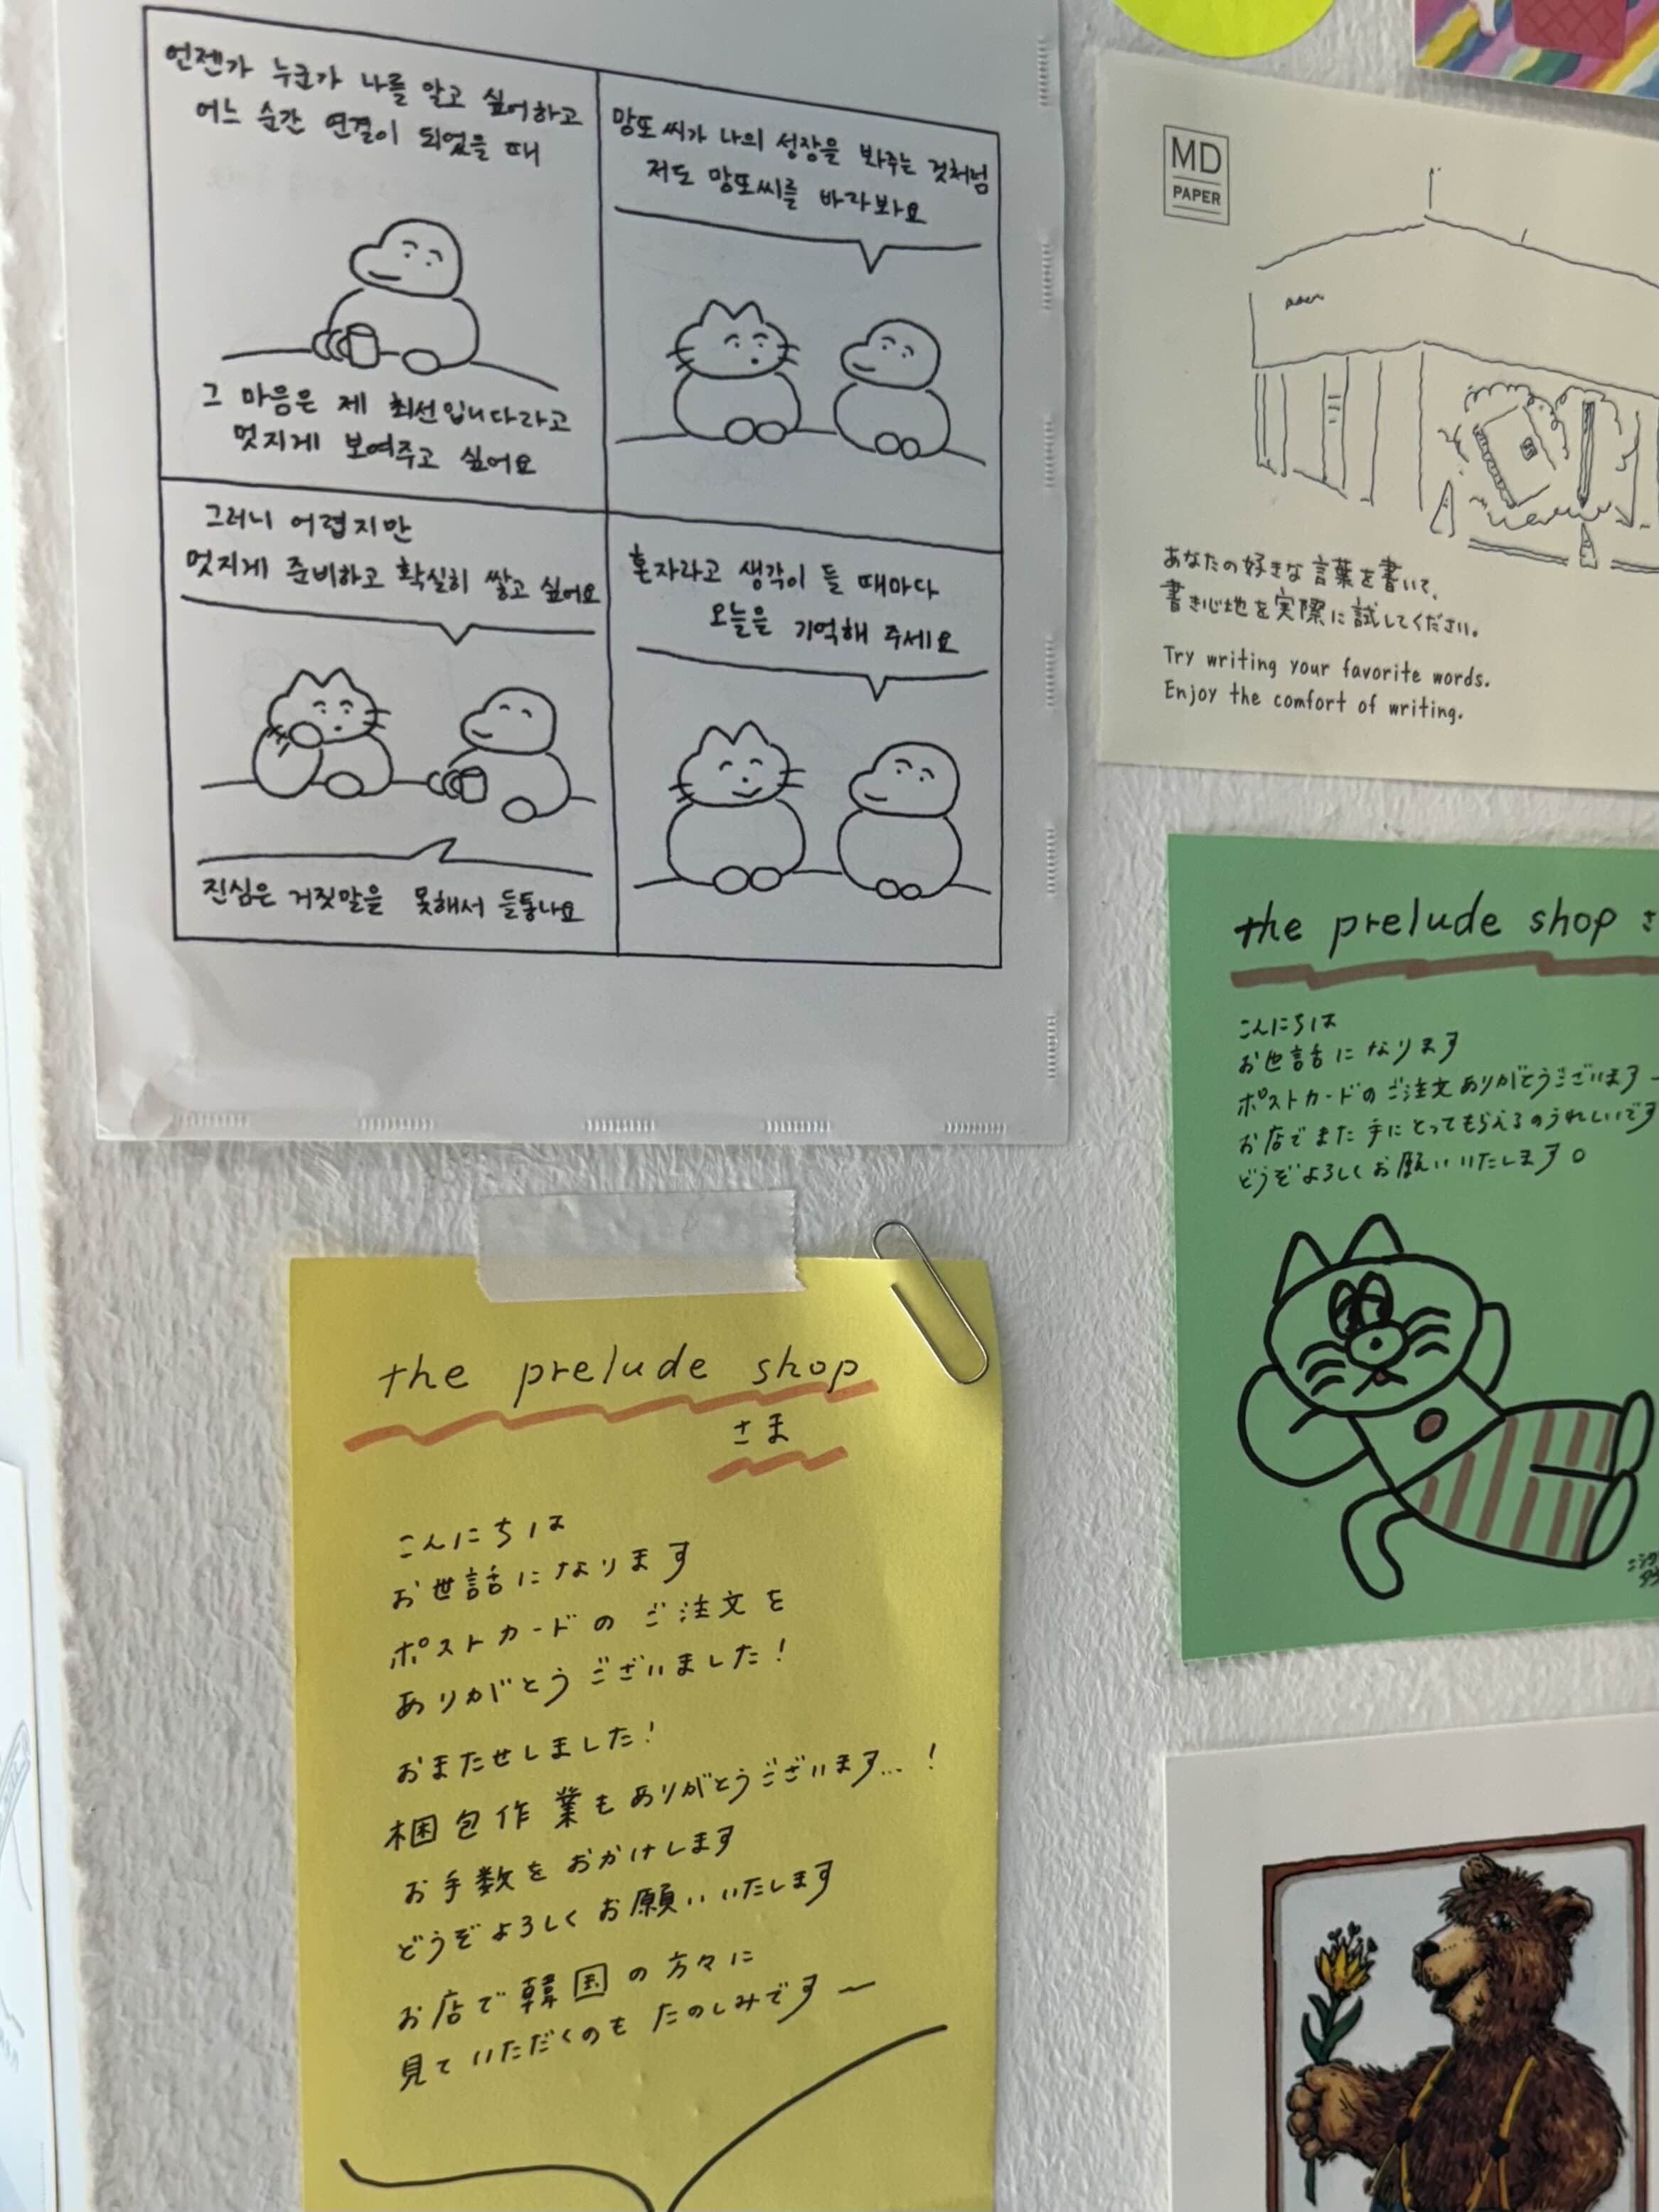 언젠가 누군가 나를 알고 싶어하고
어느 순간 연결이 되었을 때
그 마음은 제 최선입니다라고
멋지게 보여주고 싶어요
망또씨가 나의 성장을 봐주는 것처럼
저도 망또씨를 바라봐요
그러니 어렵지만
멋지게 준비하고 확실히 쌓고 싶어요
진심은 거짓말을 못해서 들통나요
혼자라고 생각이 들 때마다
오늘을 기억해 주세요
MD
PAPER
あなたの好きな言葉を書いて、
書き心地を実際に試してください。
Try writing your favorite words.
Enjoy the comfort of writing.
the prelude shop さ
こんにちは
お世話になります
ポストカードのご注文ありがとうございます
お店でまた手にとってもらえるのうれしいです
どうぞよろしくお願いいたします。
the prelude shop
さま
こんにちは
お世話になります
ポストカードのご注文を
ありがとうございました!
おまたせしました!
梱包作業もありがとうございます...!
お手数をおかけします
どうぞよろしくお願いいたします
お店で韓国の方々に
見ていただくのもたのしみです〜